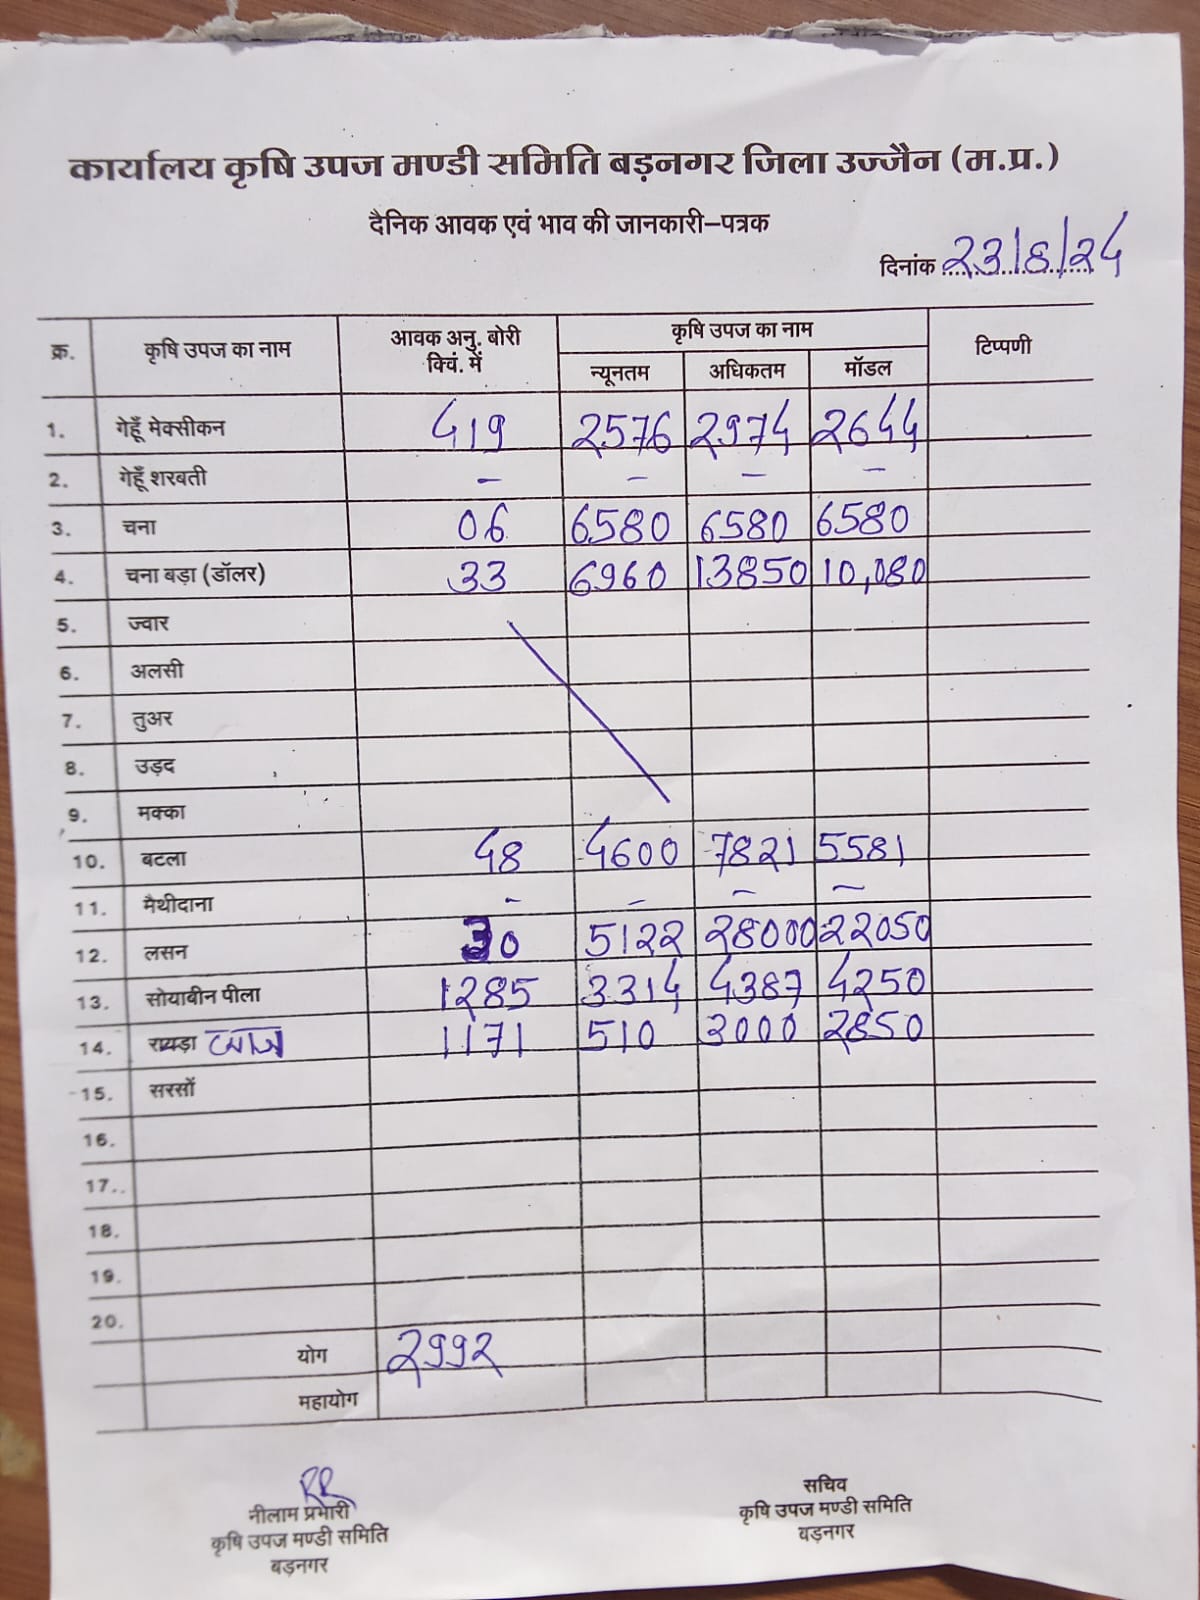 कार्यालय कृषि उपज मण्डी समिति बड़नगर जिला उज्जैन (म.प्र.)
दैनिक आवक एवं भाव की जानकारी–पत्रक
दिनांक 23/8/24
क्र. कृषि उपज का नाम आवक अनु. बोरी क्विं. में कृषि उपज का नाम टिप्पणी
न्यूनतम अधिकतम मॉडल
1. गेहूँ मेक्सीकन 419 2576 2974 2644
2. गेहूँ शरबती – – – –
3. चना 06 6580 6580 6580
4. चना बड़ा (डॉलर) 33 6960 13850 10,080
5. ज्वार
6. अलसी
7. तुअर
8. उड़द
9. मक्का
10. बटला 48 4600 7821 5581
11. मैथीदाना - – – –
12. लसन 30 5122 28000 22050
13. सोयाबीन पीला 1285 3314 4387 4250
14. रायड़ा 1171 510 3000 2850
15. सरसों
16.
17..
18.
19.
20.
योग 2992
महायोग
RR
नीलाम प्रभारी
कृषि उपज मण्डी समिति
बड़नगर
सचिव
कृषि उपज मण्डी समिति
बड़नगर